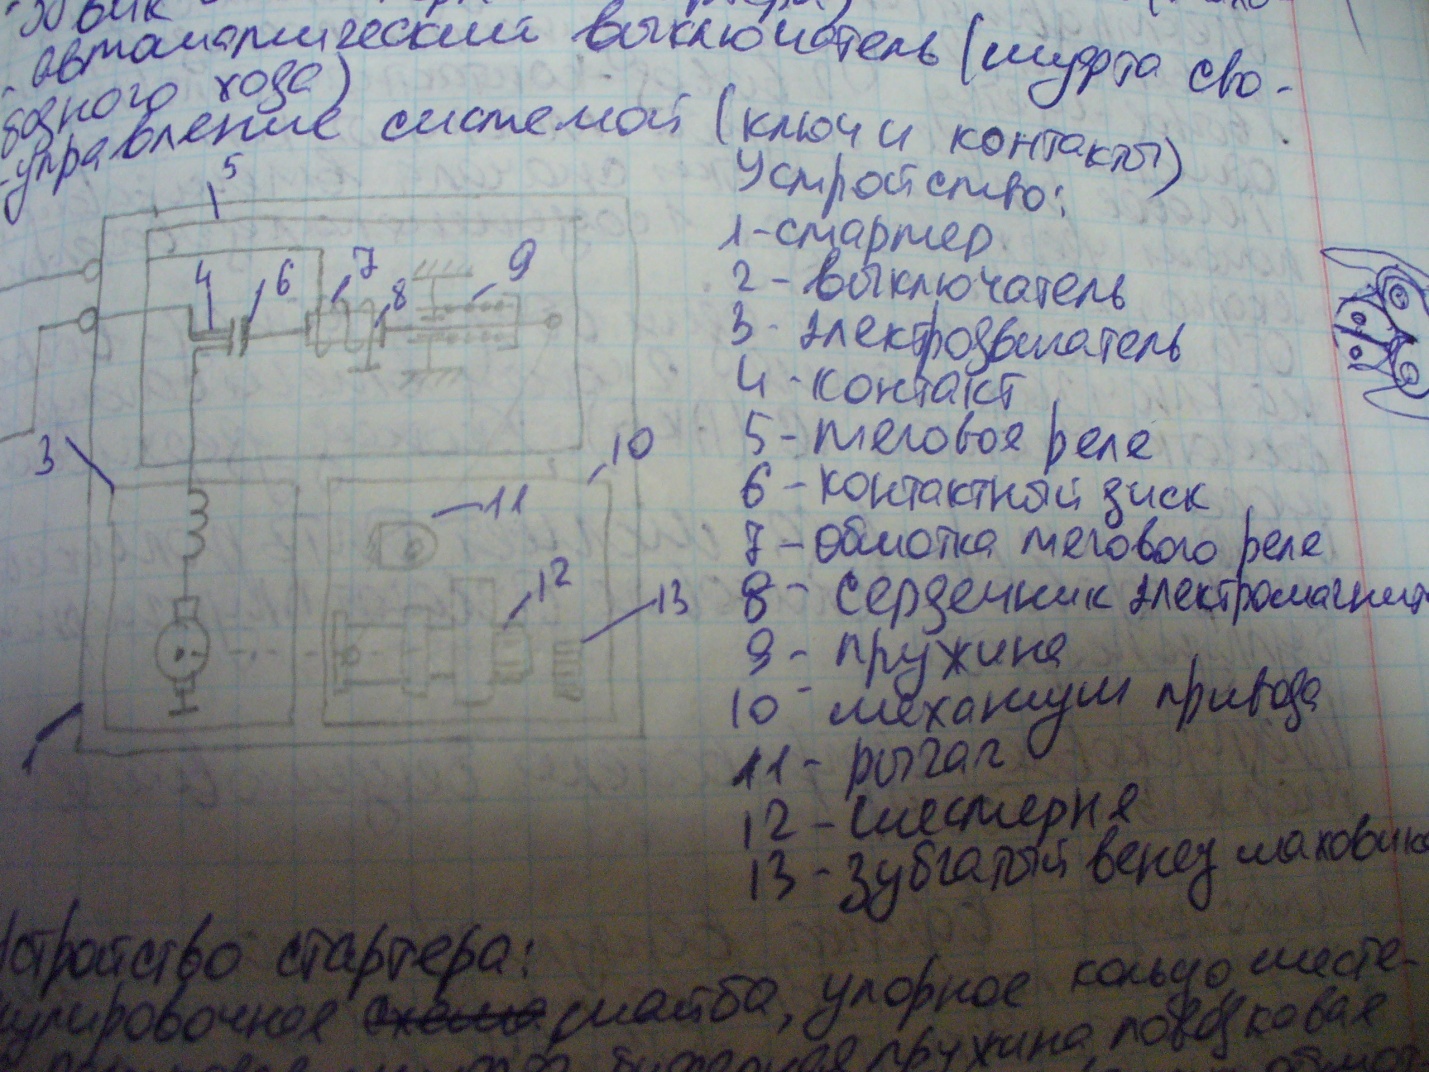 автоматический выключатель (муфта сво-
бодного хода)
- управление системой (ключ и контакты)
Устройство:
1 - стартер
2 - выключатель
3 - электродвигатель
4 - контакт
5 - тяговое реле
6 - контактный диск
7 - обмотка тягового реле
8 - сердечник электромагнит
9 - пружина
10 - механизм привода
11 - рычаг
12 - шестерня
13 - зубчатый венец маховика
5
4
6
7
8
9
3
10
11
12
13
1
стройство стартера:
улировочное шайба, упорное кольцо шесте-
пружина поводковая